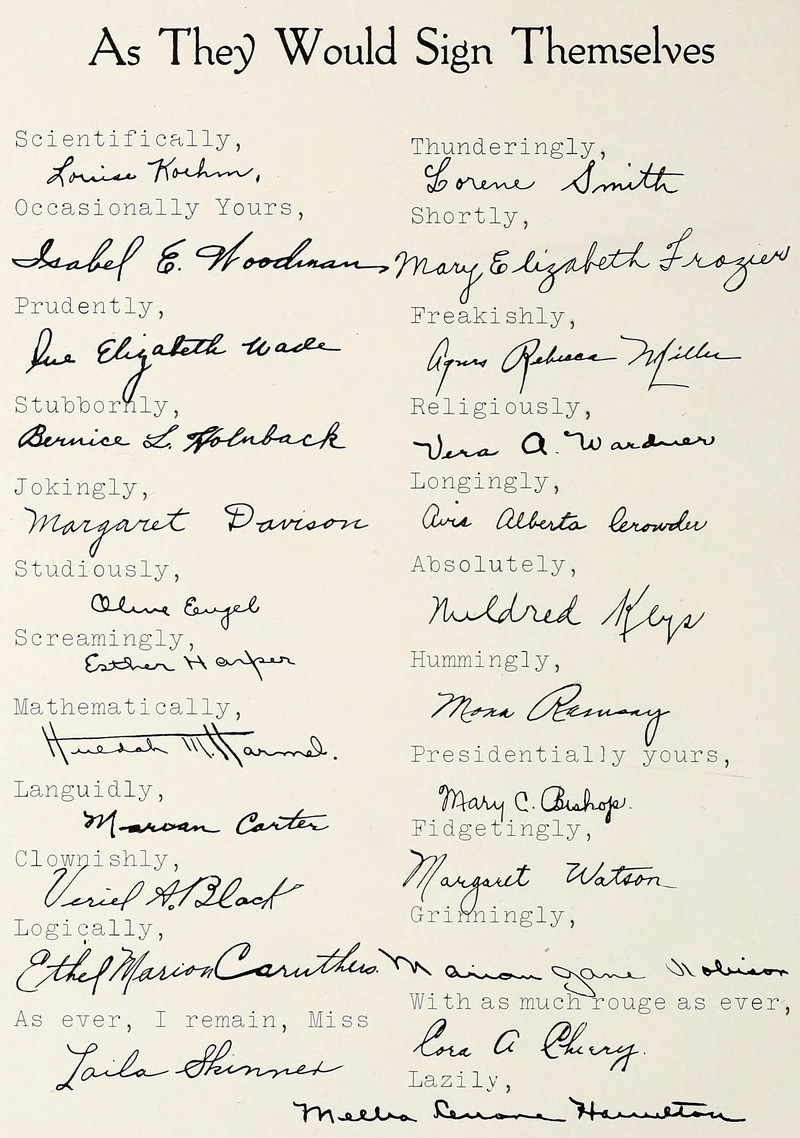 As They Would Sign Themselves
Scientifically,
Louise Koehm,
Occasionally Yours,
Isabel E. Woodman,
Prudently,
Elizabeth Wade
Stubbornly,
Bernice L. Holnback
Jokingly,
Margaret Davison
Studiously,
Olive Engel
Screamingly,
Esther Harper
Mathematically,
Huldah M. Harmel.
Languidly,
Carter
Clownishly,
Veriel A. Black
Logically,
Ethel Marion Caruthers.
As ever, I remain, Miss
Laila Skinner
Thunderingly,
Lorene Smith
Shortly,
Mary Elizabeth Frazier
Freakishly,
Agnes Rebecca Miller
Religiously,
Vera A. Wardner
Longingly,
Avis Alberta Crowder
Absolutely,
Mildred Keys
Hummingly,
Mona Ramsay
Presidentially yours,
Mary C. Bishop.
Fidgetingly,
Margaret Watson
Grinningly,
Marian Jane Robison
With as much rouge as ever,
Cora A Cherry.
Lazily,
Hamilton